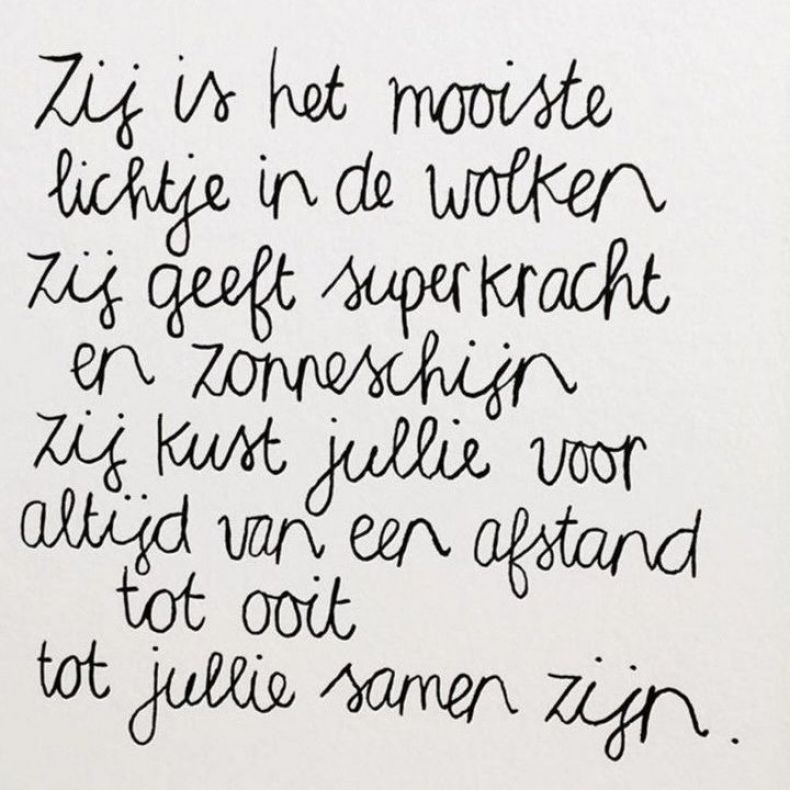 Zij is het mooiste
lichtje in de wolken
zij geeft superkracht
en zonneschijn
Zij kust jullie voor
altijd van een afstand
tot ooit
tot jullie samen zijn.